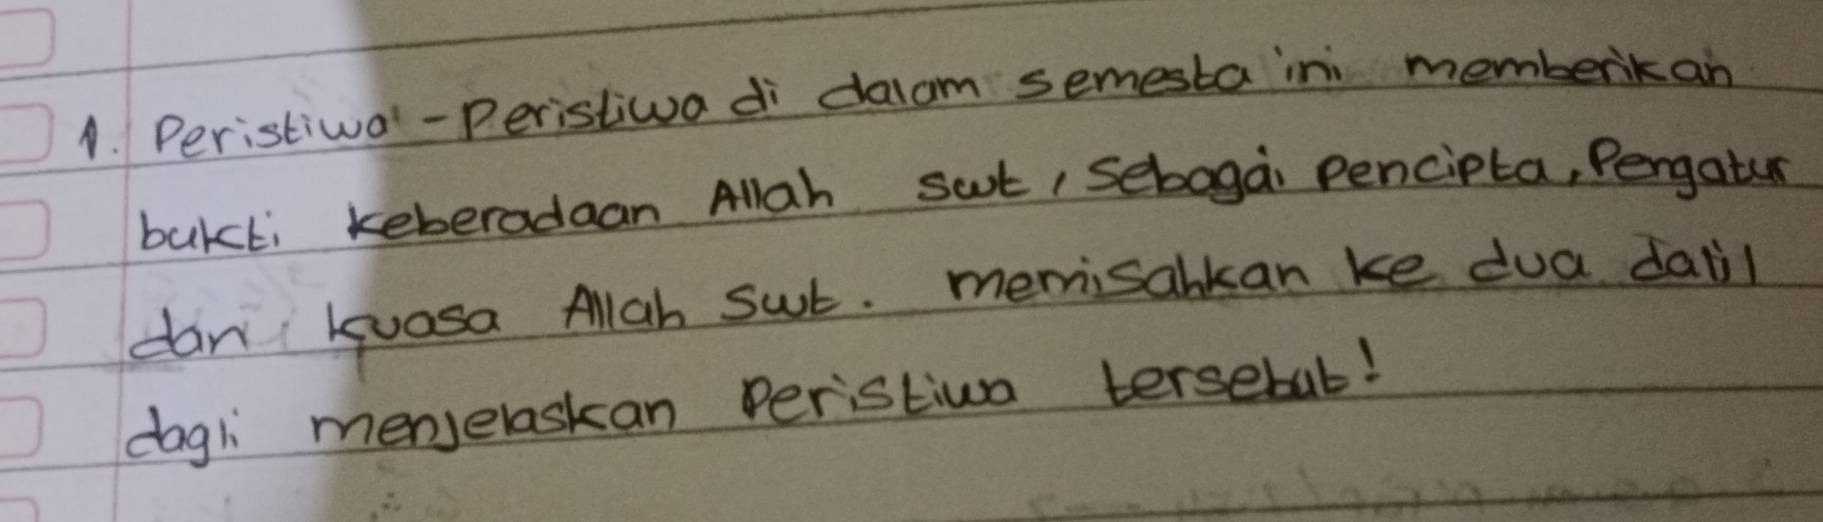 1. Peristiwa - Peristiwa di dalam semesta ini memberikan
bukti keberadaan Allah swt, sebagai pencipta, Pengatur
dan kuasa Allah swt. memisahkan ke dua dalil
dagli menjelaskan peristiwa tersebut!